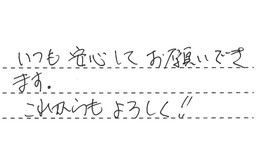 いつも安心してお願いでき
ます。
これからもよろしく!!